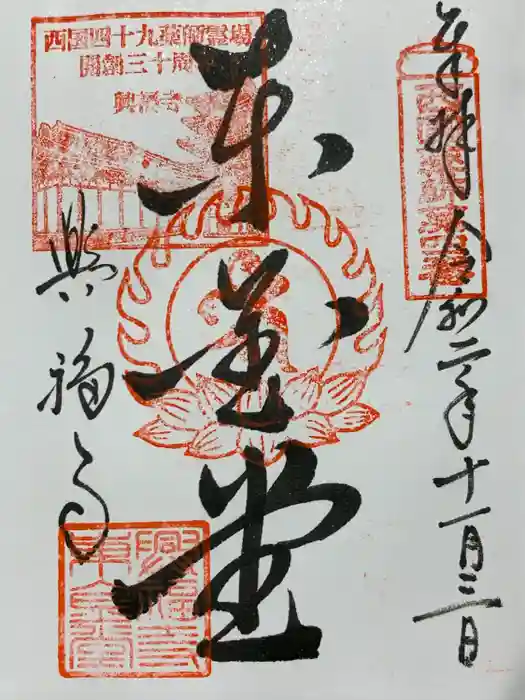 奉拝
令和二年十一月三日
東金堂
興福寺
西国四十九薬師霊場
開創三十周年
興福寺
興福寺東金堂